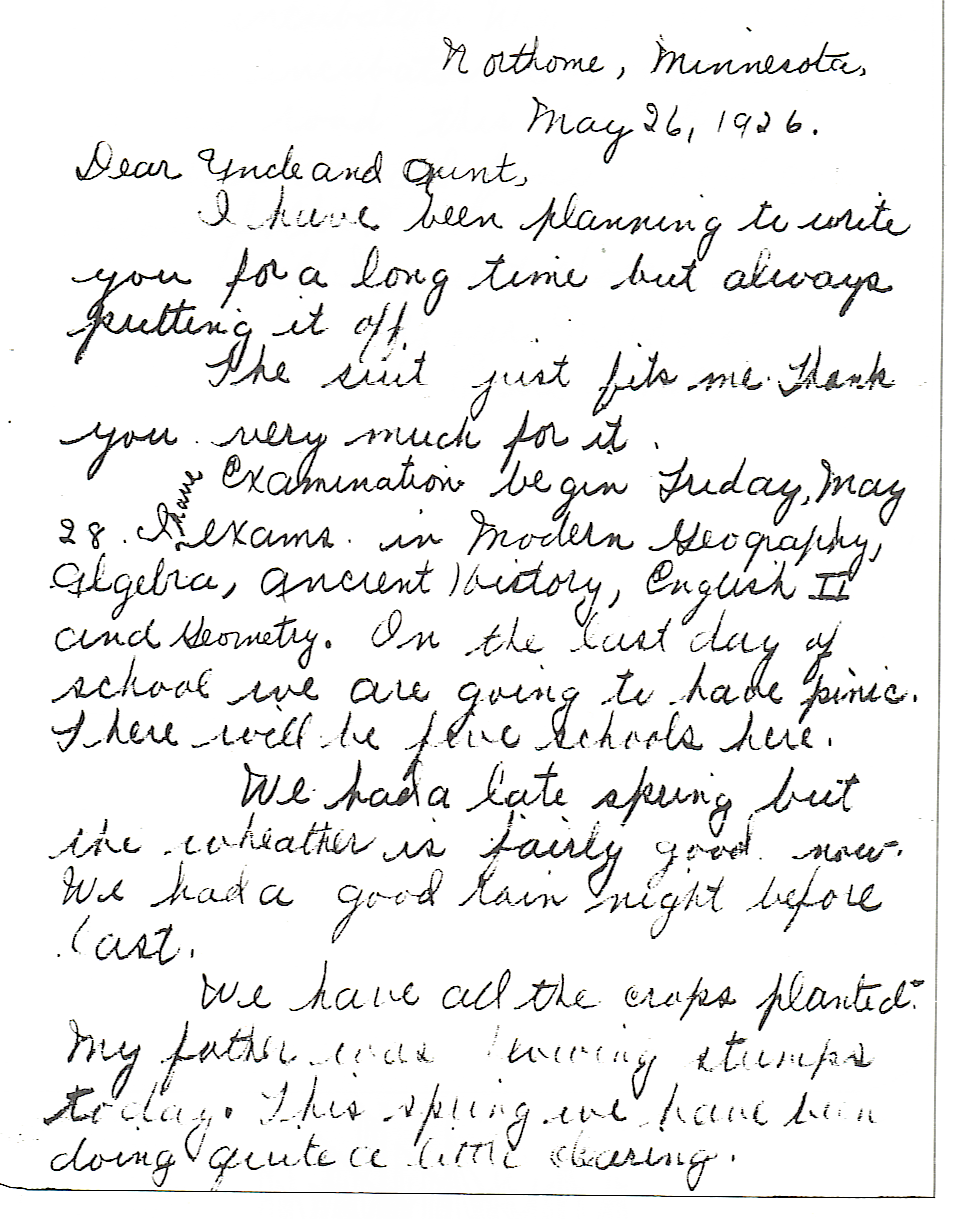 Northome, Minnesota,
May 26, 1926.
Dear Uncle and Aunt,
I have been planning to write
you for a long time but always
putting it off.
The suit just fits me. Thank
you very much for it.
have
Examination begin Friday, May
28. I exams. in Modern Geography,
Algebra, Ancient History, English II
and Geometry. On the last day of
school we are going to have pinic.
There will be five schools here.
We had a late spring but
the wheather is fairly good now.
We had a good rain night before
last.
We have all the crops planted.
My father was stumps
today. This spring we have been
doing quite a little clearing.